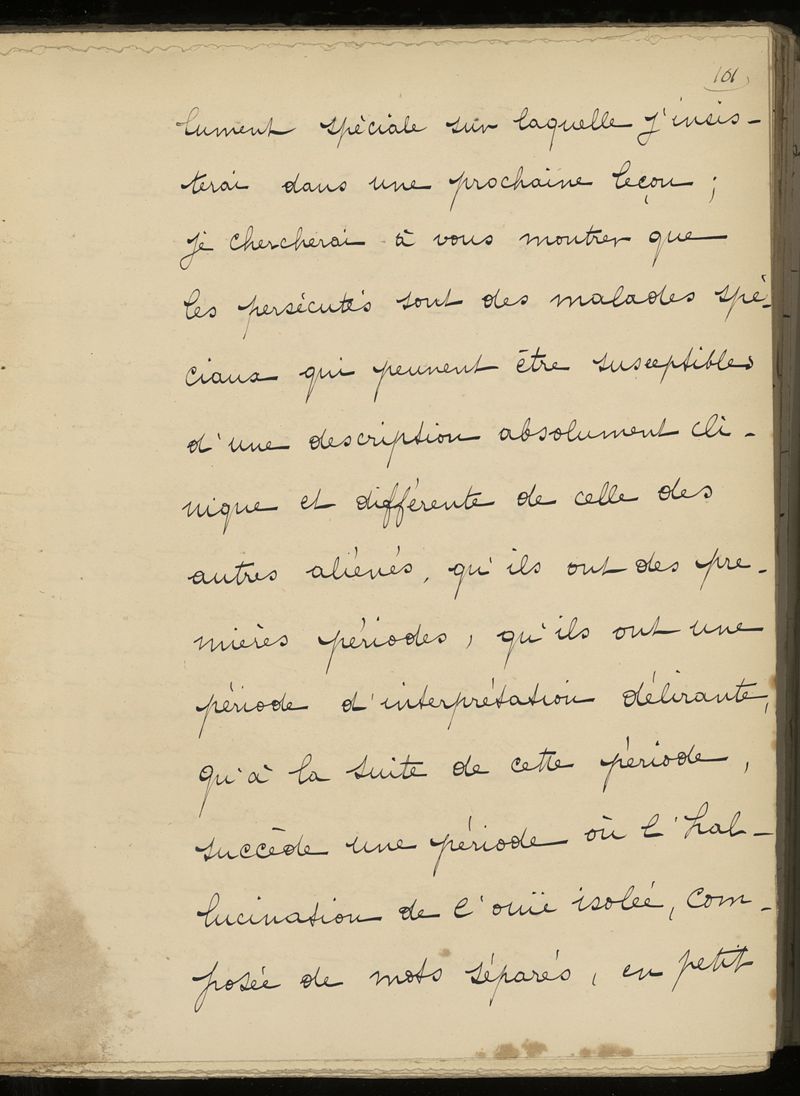 101
lument spéciale sur laquelle j'insis-
terai dans une prochaine leçon ;
je chercherai à vous montrer que
les persécutés sont des malades spé-
ciaux qui peuvent être susceptibles
d'une description absolument cli-
nique et différente de celle des
autres aliénés, qu'ils ont des pre-
mières périodes, qu'ils ont une
période d'interprétation délirante,
qu'à la suite de cette période,
succède une période où l'hal-
lucination de l'ouïe isolée, com-
posée de mots séparés, en petit